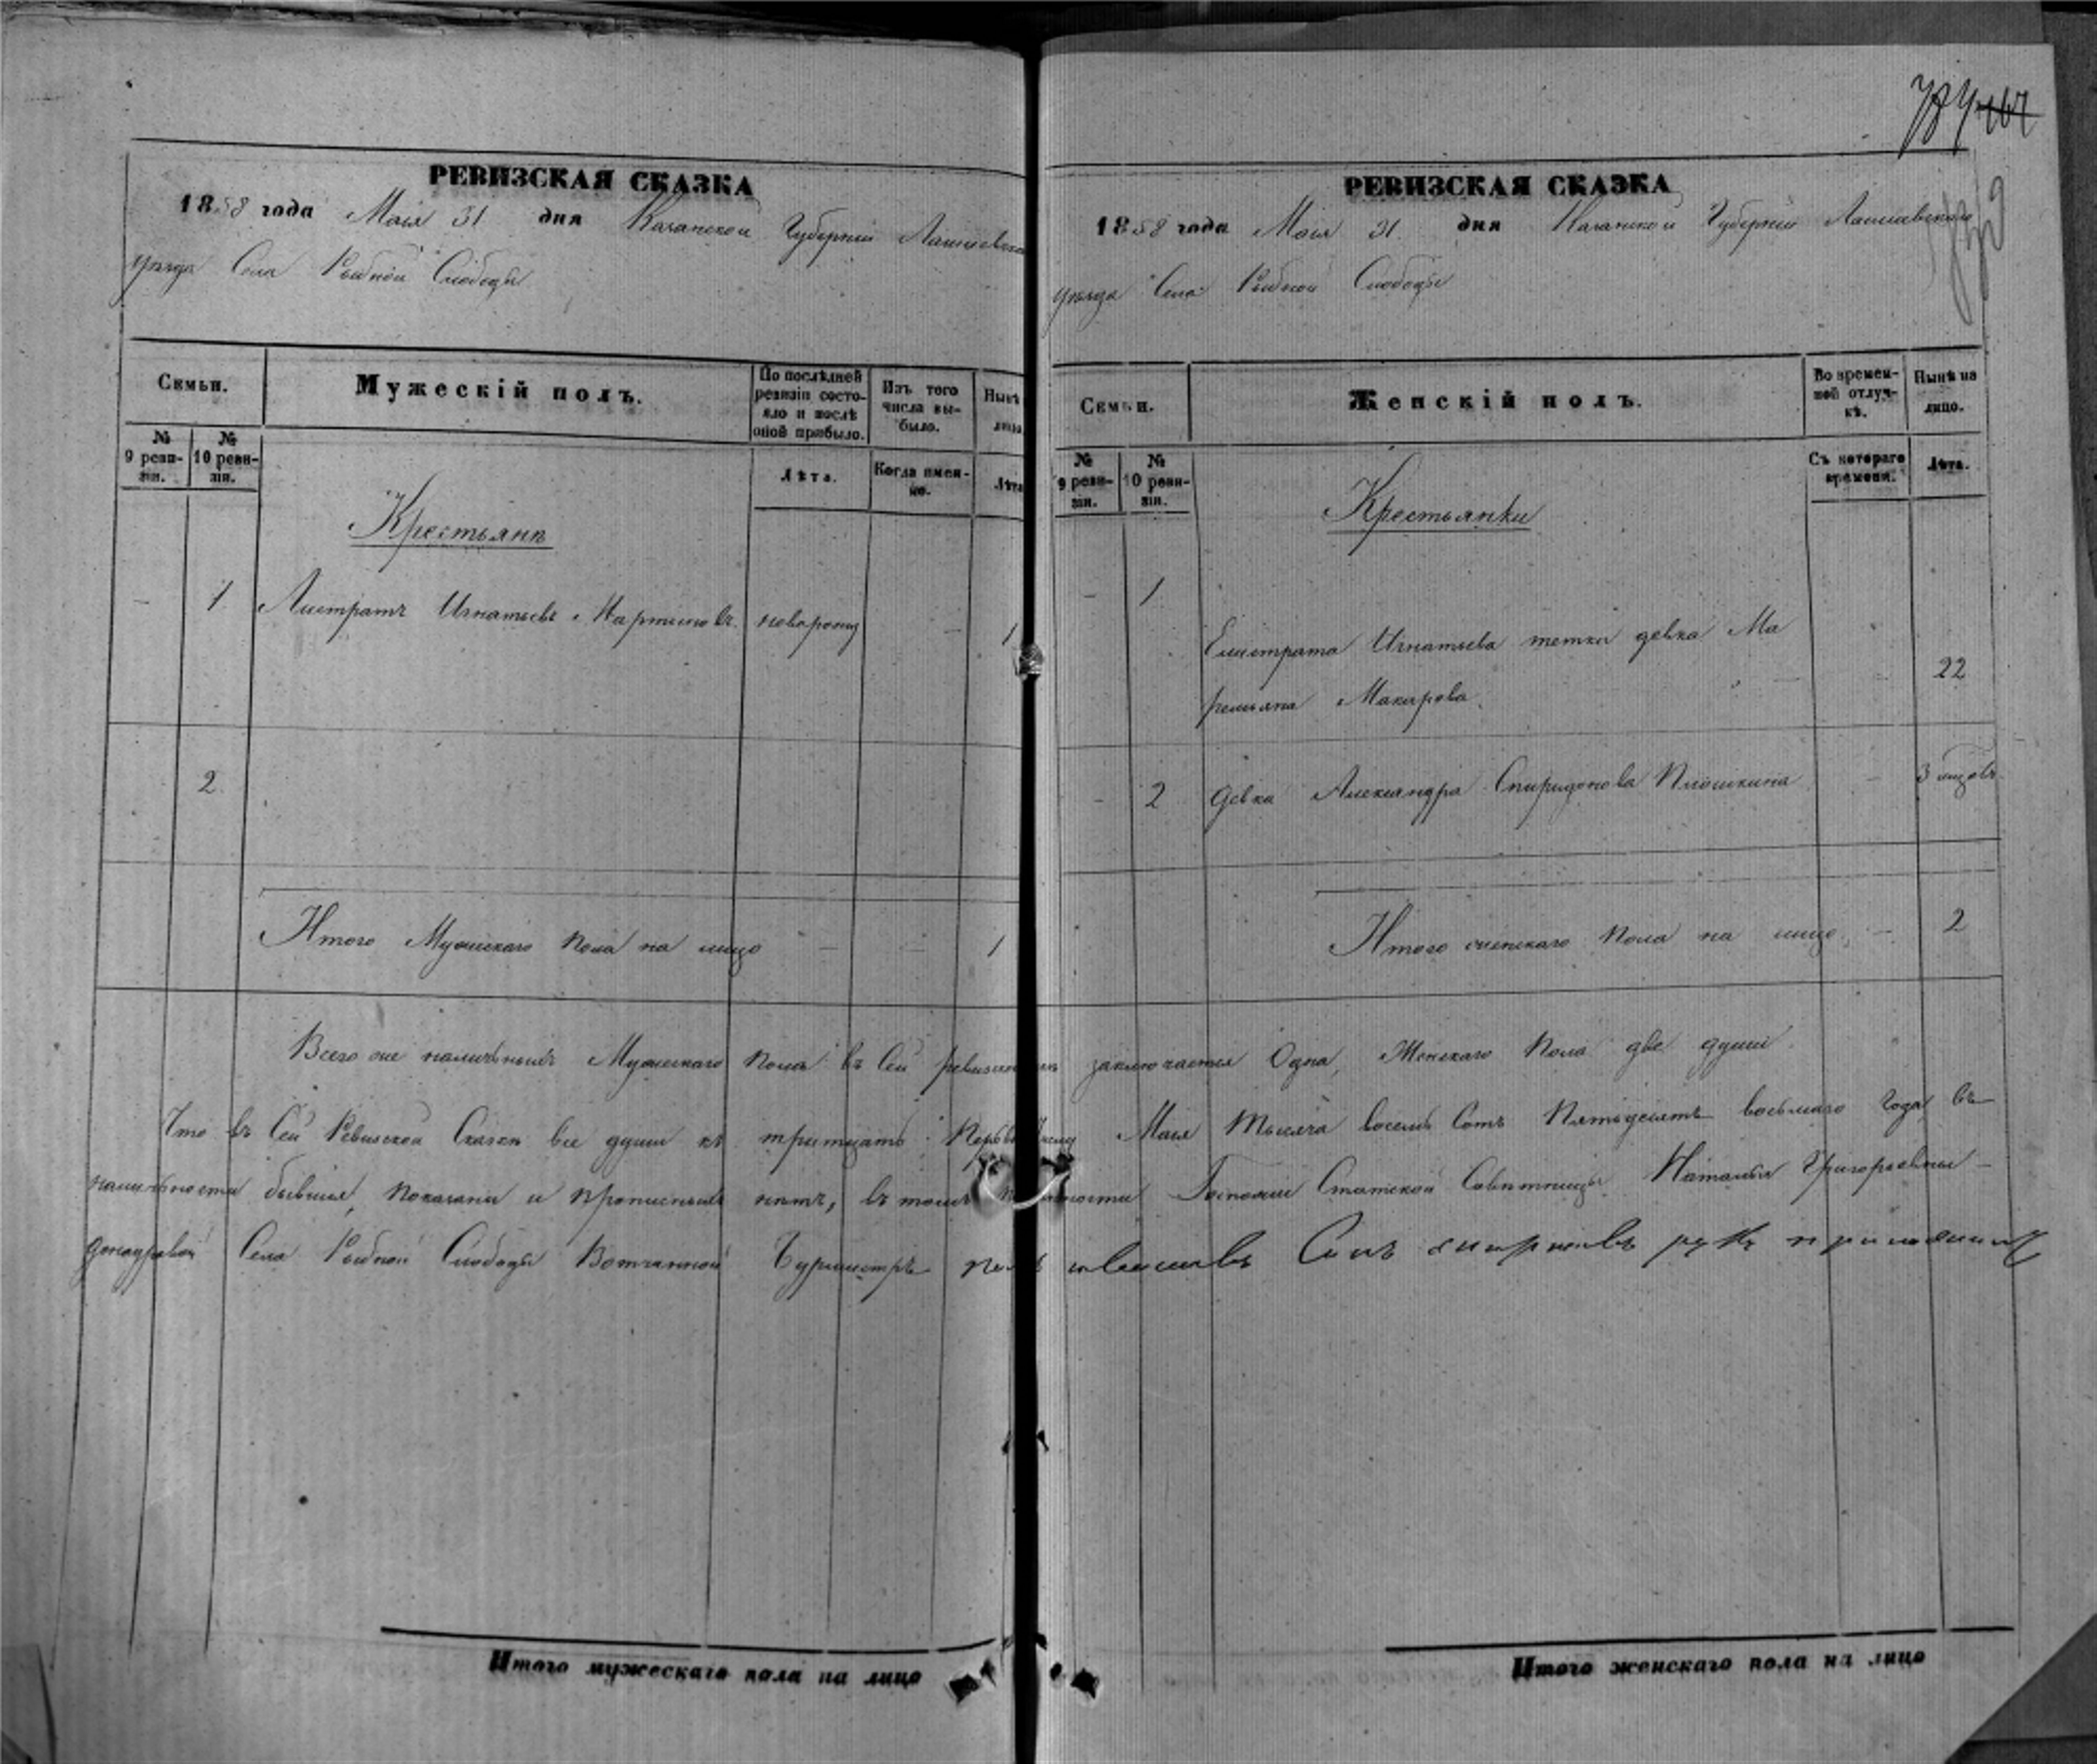 РЕВИЗСКАЯ СКАЗКА
1858 года Маія 31 дня Казанской Губерніи Лаишевскаго
уѣзда Села Рыбной Слободы
Семьи.
Мужескій полъ.
По послѣдней ревизіи состояло и послѣ оной прибыло.
Изъ того числа выбыло.
Нынѣ лицо.
№ 9 ревизіи.
№ 10 ревизіи.
Лѣта.
Когда именно.
Лѣта
Крестьяне
1 Листратъ Игнатьевъ Мартыновъ новорожд — 1
2
Итого Мужескаго пола на лицо — — 1
РЕВИЗСКАЯ СКАЗКА
1858 года Маія 31 дня Казанской Губерніи Лаишевскаго
уѣзда Села Рыбной Слободы
Семьи.
Женскій полъ.
Во временной отлучкѣ.
Нынѣ на лицо.
№ 9 ревизіи.
№ 10 ревизіи.
Съ котораго времени.
Лѣта.
Крестьянки
— 1
Елистрата Игнатьева тетка девка Ма
ремьяна Макарова — 22
— 2 девка Александра Спиридонова Плюшкина — 3
Итого женскаго пола на лицо — 2
Всего же наличныхъ Мужескаго пола въ Сей заключается Одна, Женскаго пола две души
Что въ Сей Ревизской Сказки все души къ тритцать Первому Маія Тысяча восемь Сотъ Пятьдесятъ восьмаго Года въ
наличности бывшія, показаны и прописныхъ нѣтъ, въ томъ Госпожи Статской Совѣтницы Натальи Григорьевны
Села Рыбной Слободы Вотчинной Бурмистръ руку приложилъ
Итого мужескаго пола на лицо
Итого женскаго пола на лицо